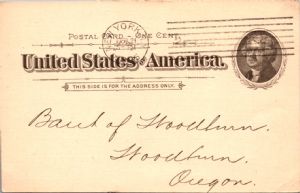 YORK
POSTAL CARD — ONE CENT.
United States of America.
THIS SIDE IS FOR THE ADDRESS ONLY.
Bank of Woodburn.
Woodburn.
Oregon.